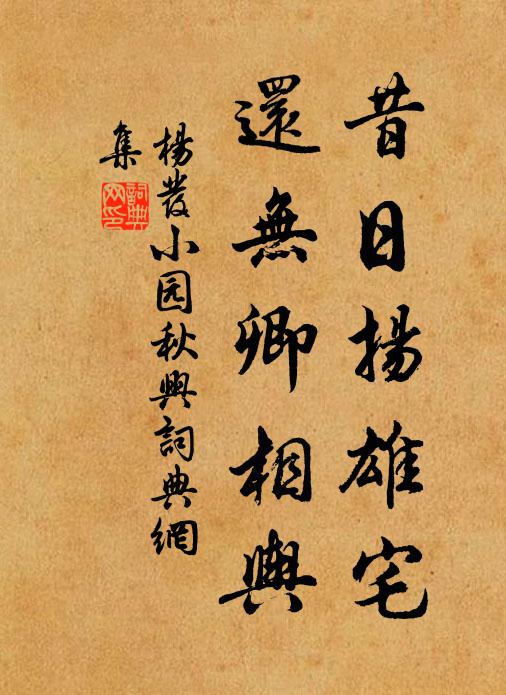 昔日揚雄宅
還無卿相輿
楊發小园秋興詞典網
集
詞典网印